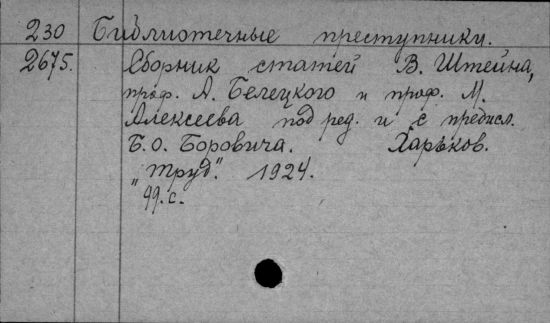 230 Библиотечные преступники.
2675. Сборник статей В. Штейна,
проф. А. Белецкого и проф. М.
Алексеева под ред. и с предисл.
Б. О. Боровича. Харьков.
"Труд". 1924.
99. с.